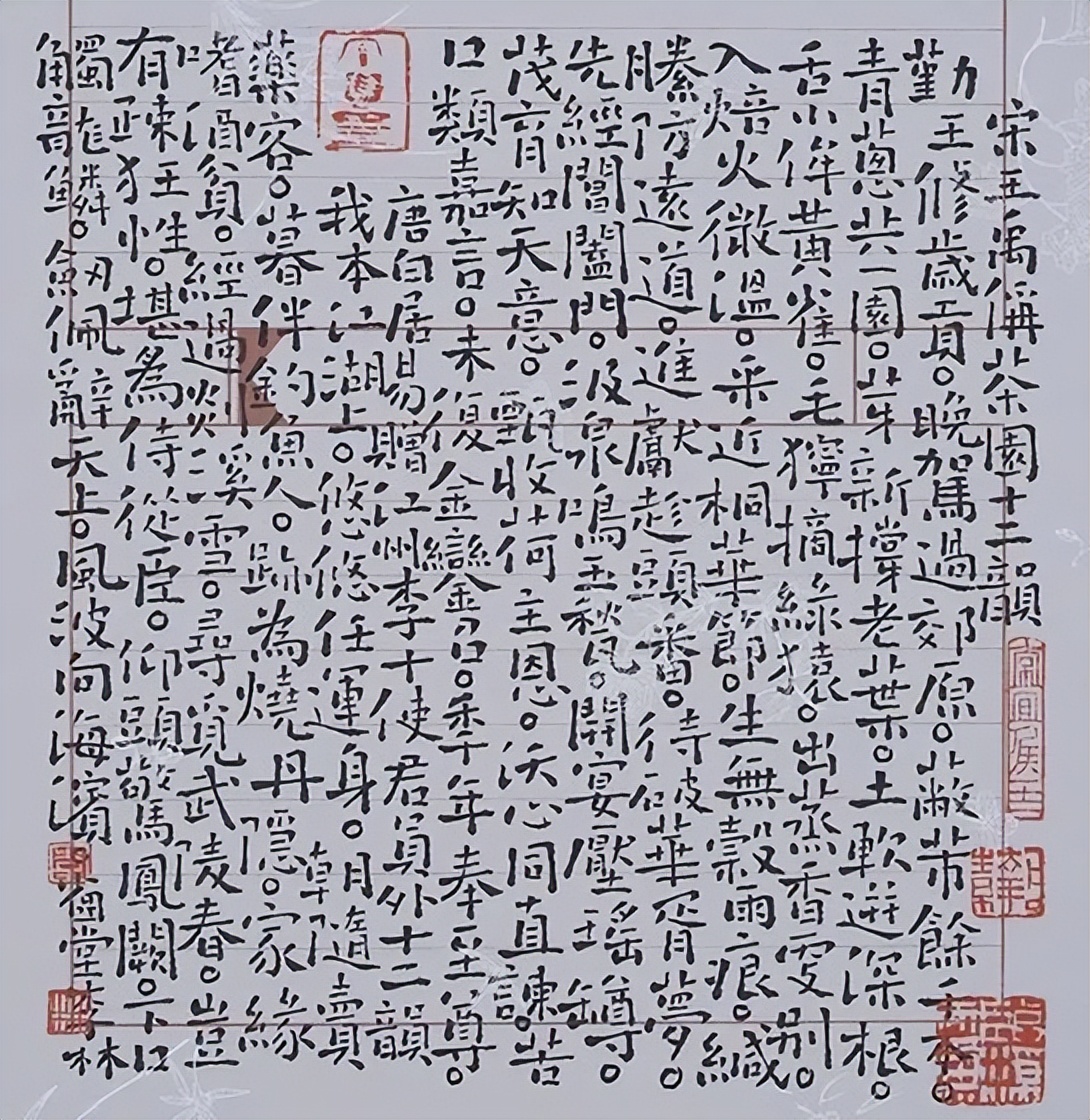 宋王禹偁茶園十二韻
勤王修歲貢。晚駕過郊原。蔽芾餘千本。
青蔥共一園。芽新撑老葉。土軟迸深根。
舌小侔黄雀。毛獰摘綠猿。出蒸香更別。
入焙火微溫。采近桐華節。生無穀雨痕。緘
縢防遠道。進獻趁頭番。待破華胥夢。
先經閶闔門。汲泉鳴玉甃。開宴壓瑤罇。
茂育知天意。甄收荷主恩。沃心同直諫。苦
口類嘉言。未復金鑾召。年年奉至尊。
唐白居易贈江州李十使君員外十二韻
我本江湖上。悠悠任運身。朝隨賣
藥客。暮伴釣魚人。跡為燒丹隱。家緣
嗜酒貧。經過剡溪雪。尋覓武陵春。豈
有疎狂性。堪為侍從臣。仰頭驚鳳闕。下口
觸龍鱗。劒佩辭天上。風波向海濱。